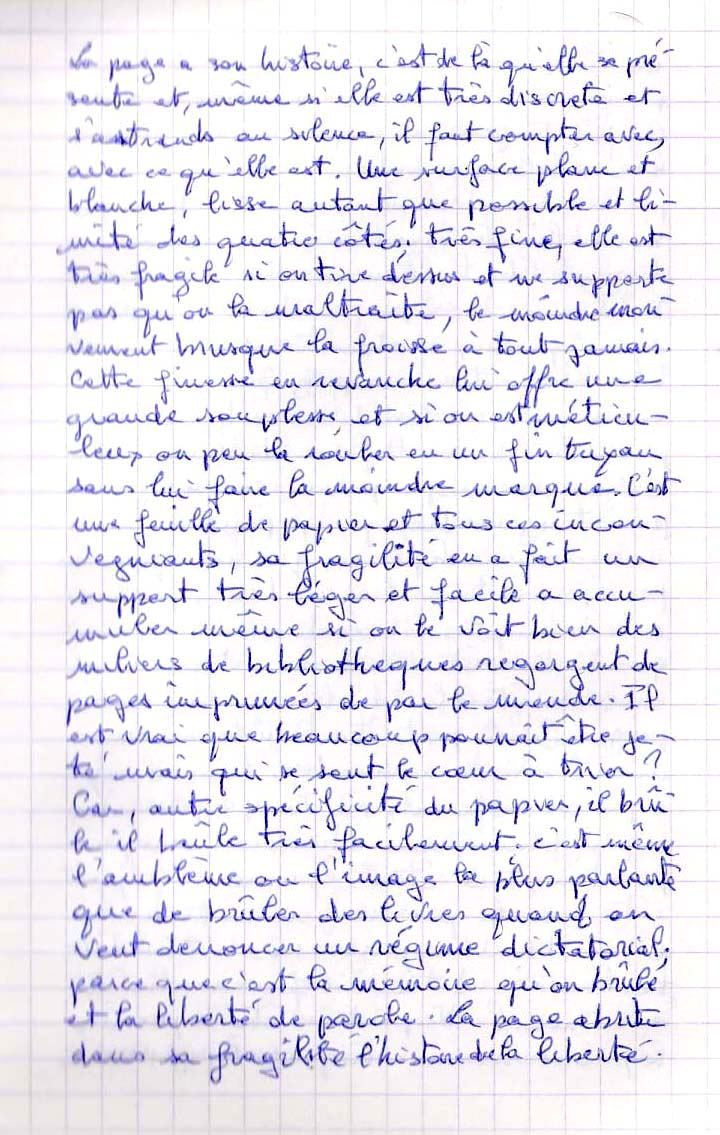 La page a son histoire, c'est de là qu'elle se pré-
sente et, même si elle est très discrète et
s'astreinds au silence, il faut compter avec,
avec ce qu'elle est. Une surface plane et
blanche, lisse autant que possible et li-
mité des quatre côtés. très fine, elle est
très fragile si on tire dessus et ne supporte
pas qu'on la maltraite, le moindre mou-
vement brusque la froisse à tout jamais.
Cette finesse en revanche lui offre une
grande souplesse et si on est méticu-
leux on peu la rouler en un fin tuyau
sans lui faire la moindre marque. C'est
une feuille de papier et tous ces incon-
vegniants, sa fragilité en a fait un
support très léger et facile a accu-
muler même si on le voit bien des
milliers de bibliotheques regorgent de
pages imprimées de par le monde. Il
est vrai que beaucoup pourrait être je-
té mais qui se sent le cœur à trier ?
Car, autre spécificité du papier, il brû-
le il brûle très facilement, c'est même
l'emblème ou l'image la plus parlante
que de brûler des livres quand on
veut denoncer un régime dictatorial,
parce que c'est la mémoire qu'on brûle
et la liberté de parole. La page abrite
dans sa fragilité l'histoire de la liberté.